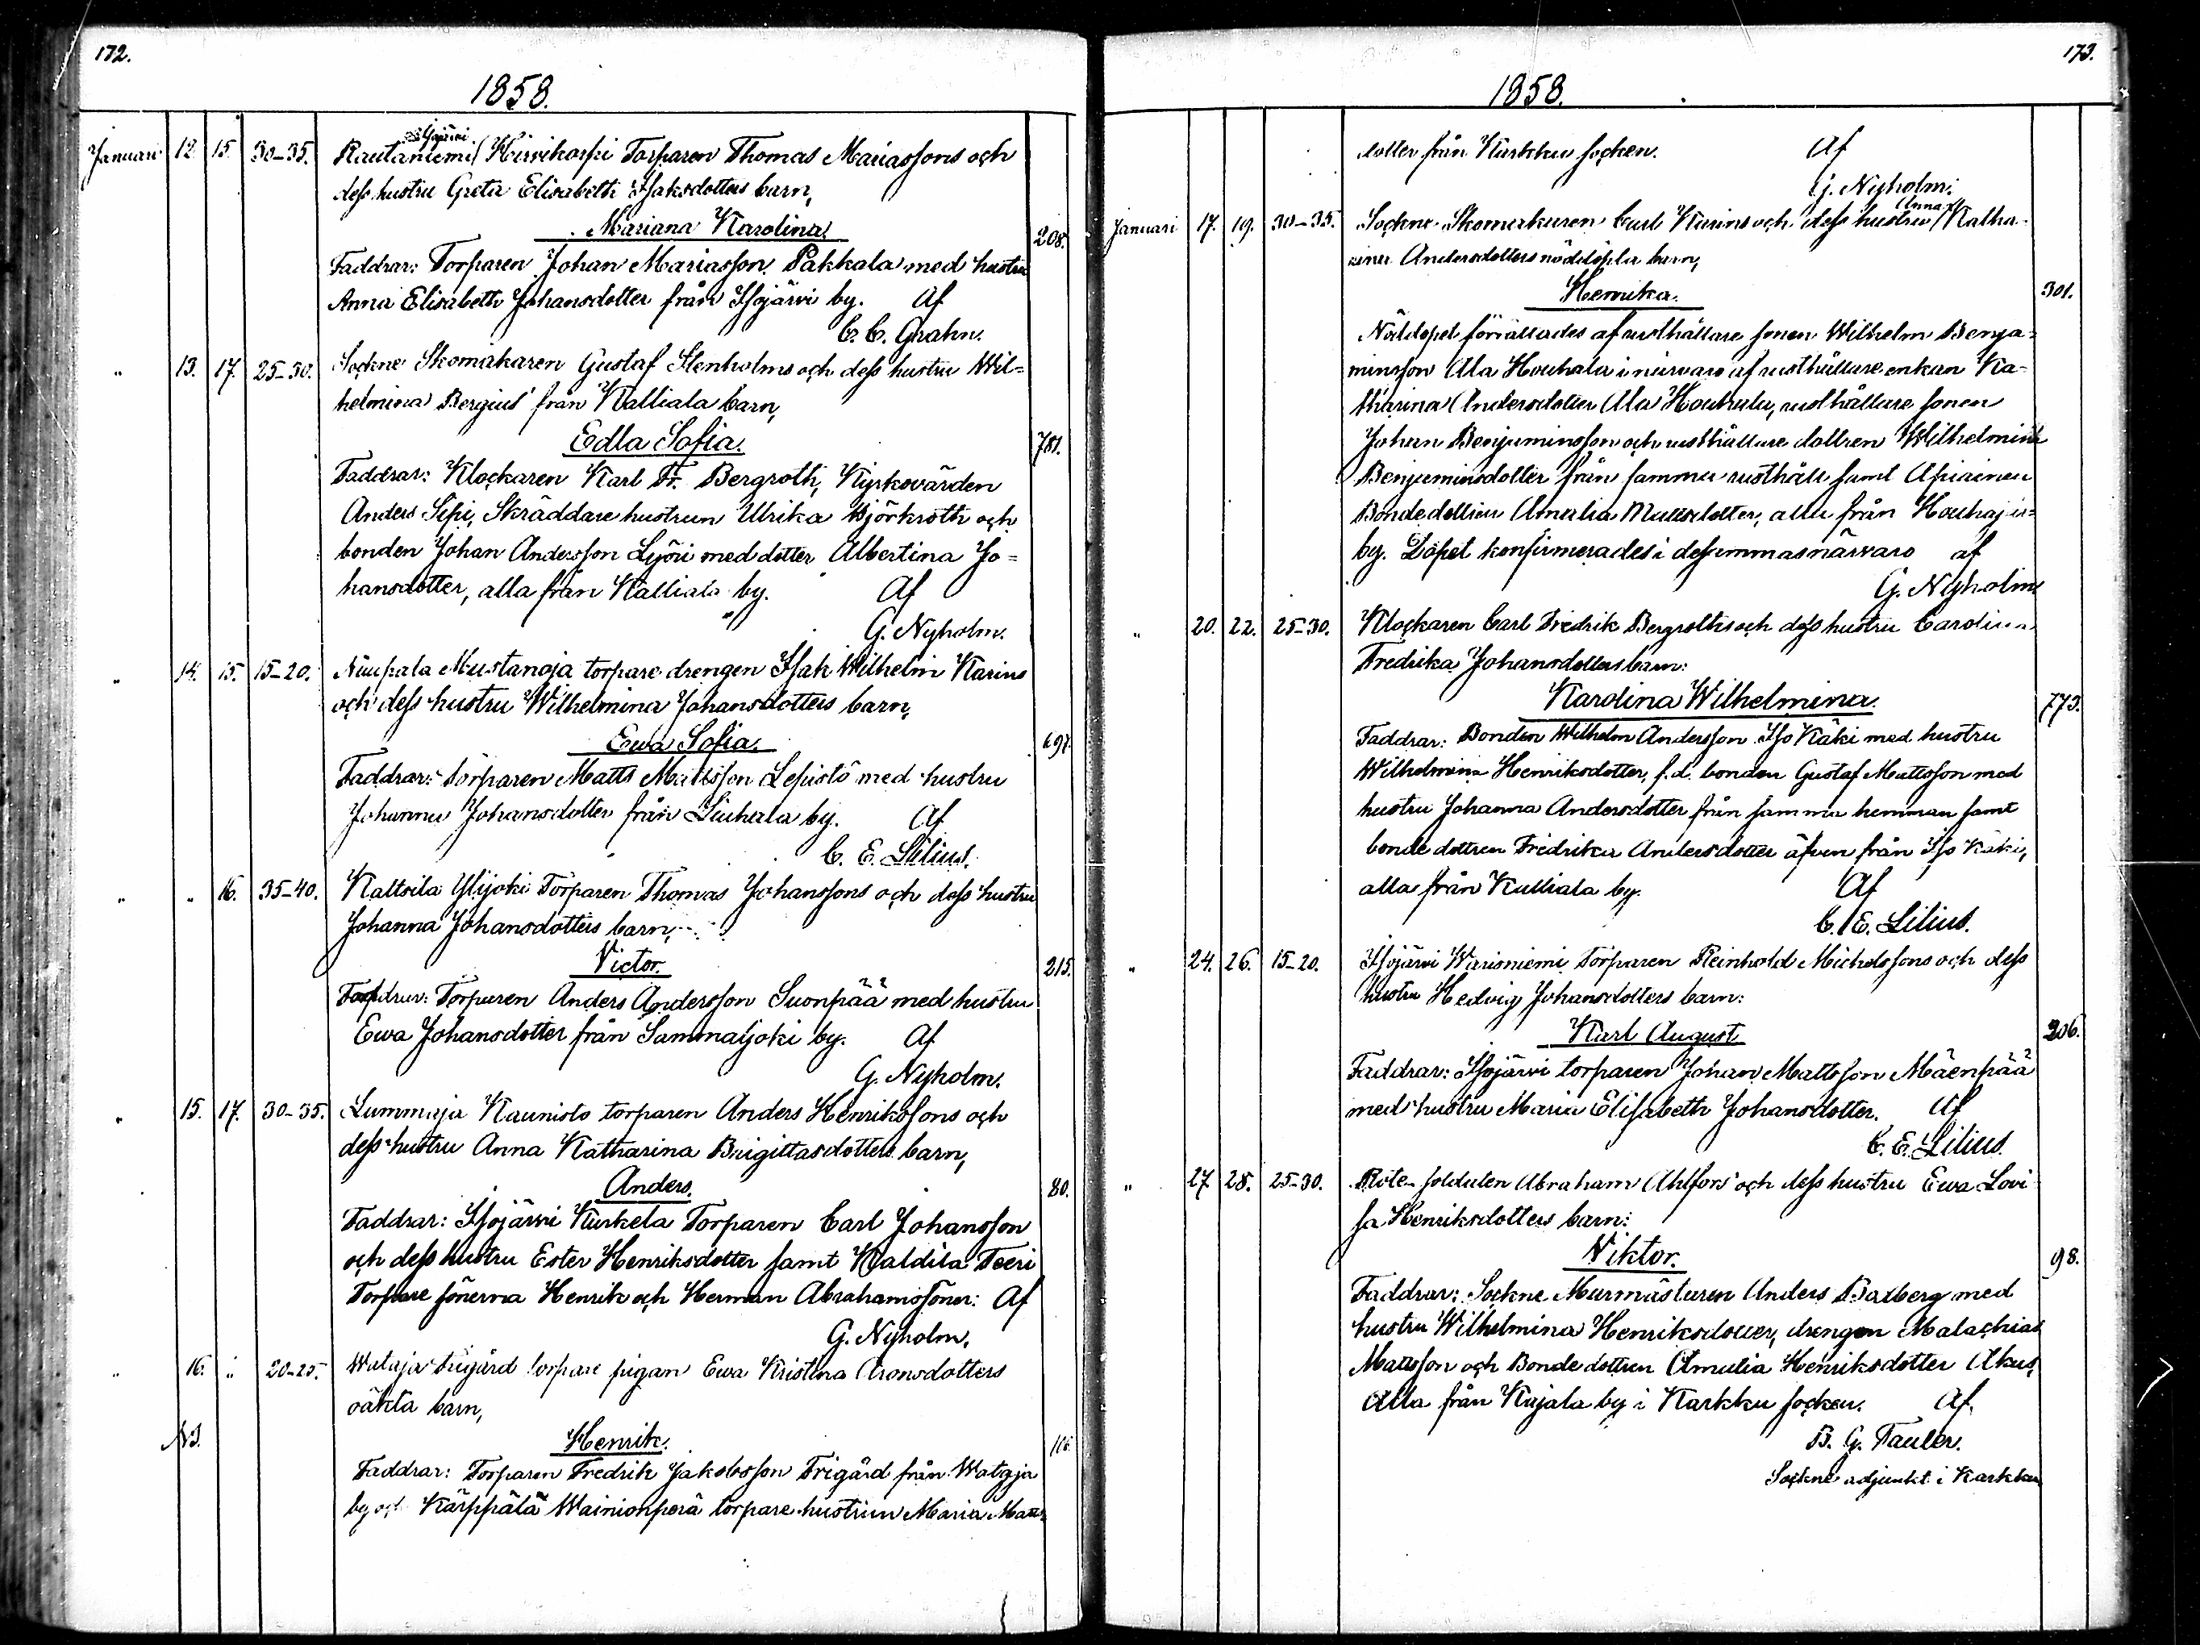 172.
1858.
Januari 12. 15. 30-35. Rautaniemi Hirvikorpi Torparen Thomas Mariassons och
dess hustru Greta Elisabeth Isaksdotters barn,
Mariana Karolina. 208.
Faddrar: Torparen Johan Mariasson Pakkala med hustru
Anna Elisabeth Johansdotter från Isojärvi by. Af
C. C. Grahn.
" 13. 17. 25-30. Sockne Skomakaren Gustaf Stenholms och dess hustru Wil=
helmina Bergius' från Kalliala barn,
Edla Sofia. 781.
Faddrar: Klockaren Karl Fr. Bergroth, Kyrkovärden
Anders Sipi, Skräddare hustrun Ulrika Björkroth och
bonden Johan Andersson Lyöri med dotter Albertina Jo=
hansdotter, alla från Kalliala by. Af
G. Nyholm.
" 14. 15. 15-20. Nuupala Mustanoja torpare drengen Isak Wilhelm Karins
och dess hustru Wilhelmina Johansdotters barn,
Ewa Sofia. 697.
Faddrar: Torparen Matts Mattsson Lepistö med hustru
Johanna Johansdotter från Liuhala by. Af
C. E. Lilius.
" " 16. 35-40. Kaltsila Ylijoki Torparen Thomas Johanssons och dess hustru
Johanna Johansdotters barn,
Victor. 215.
Faddrar: Torparen Anders Andersson Suonpää med hustru
Ewa Johansdotter från Sammaljoki by. Af
G. Nyholm.
" 15. 17. 30-35. Lummaja Kaunisto torparen Anders Henrikssons och
dess hustru Anna Katharina Brigittasdotters barn,
Anders. 80.
Faddrar: Isojärvi Kurkela Torparen Carl Johansson
och dess hustru Ester Henriksdotter samt Kaldila Teeri
Torpare sönerna Henrik och Herman Abrahamssöner: Af
G. Nyholm.
" 16. " 20-25. Wataja Trigård torpare pigan Ewa Kristina Aronsdotters
oäkta barn,
Henrik. 116.
Faddrar: Torparen Fredrik Jakobsson Trigård från Wataja
by och Kärppälä Wainionperä torpare hustrun Maria Matts
173.
1858.
dotter från Karkku socken. Af
G. Nyholm.
Januari 17. 19. 30-35. Sockne Skomakaren Carl Karins och dess hustru Anna Katha
rina Andersdotters nöddöpta barn,
Henrika. 301.
Nöddopet förrättades af rusthållare sonen Wilhelm Benja=
minsson Ala Houhala i närvaro af rusthållare enkan Ka=
tharina Andersdotter Ala Houhala, rusthållare sonen
Johan Benjaminsson och rusthållare dottren Wilhelmina
Benjaminsdotter från samma rusthåll samt
Bonde dottren Amalia Mattsdotter, alla från
by. Dopet konfirmerades i desammas närvaro af
G. Nyholm
" 20. 22. 25-30. Klockaren Carl Fredrik Bergroths och dess hustru Carolina
Fredrika Johansdotters barn:
Karolina Wilhelmina. 773.
Faddrar: Bonden Wilhelm Andersson Iso Käki med hustru
Wilhelmina Henriksdotter, f. d. bonden Gustaf Mattsson med
hustru Johanna Andersdotter från samma hemman samt
bonde dottren Fredrika Andersdotter äfven från Iso Käki,
alla från Kalliala by. Af
C. E. Lilius.
" 24. 26. 15-20. Isojärvi Warisniemi Torparen Reinhold Michelssons och dess
hustru Hedvig Johansdotters barn:
Karl August 206.
Faddrar: Isojärvi torparen Johan Mattsson Mäenpää
med hustru Maria Elisabeth Johansdotter. Af
C. E. Lilius.
" 27. 28. 25-30. Rote-soldaten Abraham Ahlfors' och dess hustru Ewa Lovi
sa Henriksdotters barn:
Viktor. 98.
Faddrar: Sockne Murmästaren Anders Baxberg med
hustru Wilhelmina Henriksdotter, drengen Malachias
Mattsson och Bonde dottren Amalia Henriksdotter Akus,
Alla från Kajala by i Karkku socken. Af.
B. G. Tauler.
Sockne adjunkt i Karkku